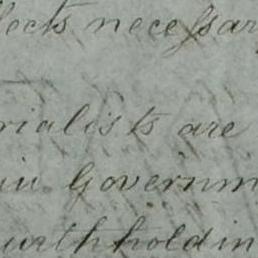 llects necessary
rialists are
in Governm
withholdin